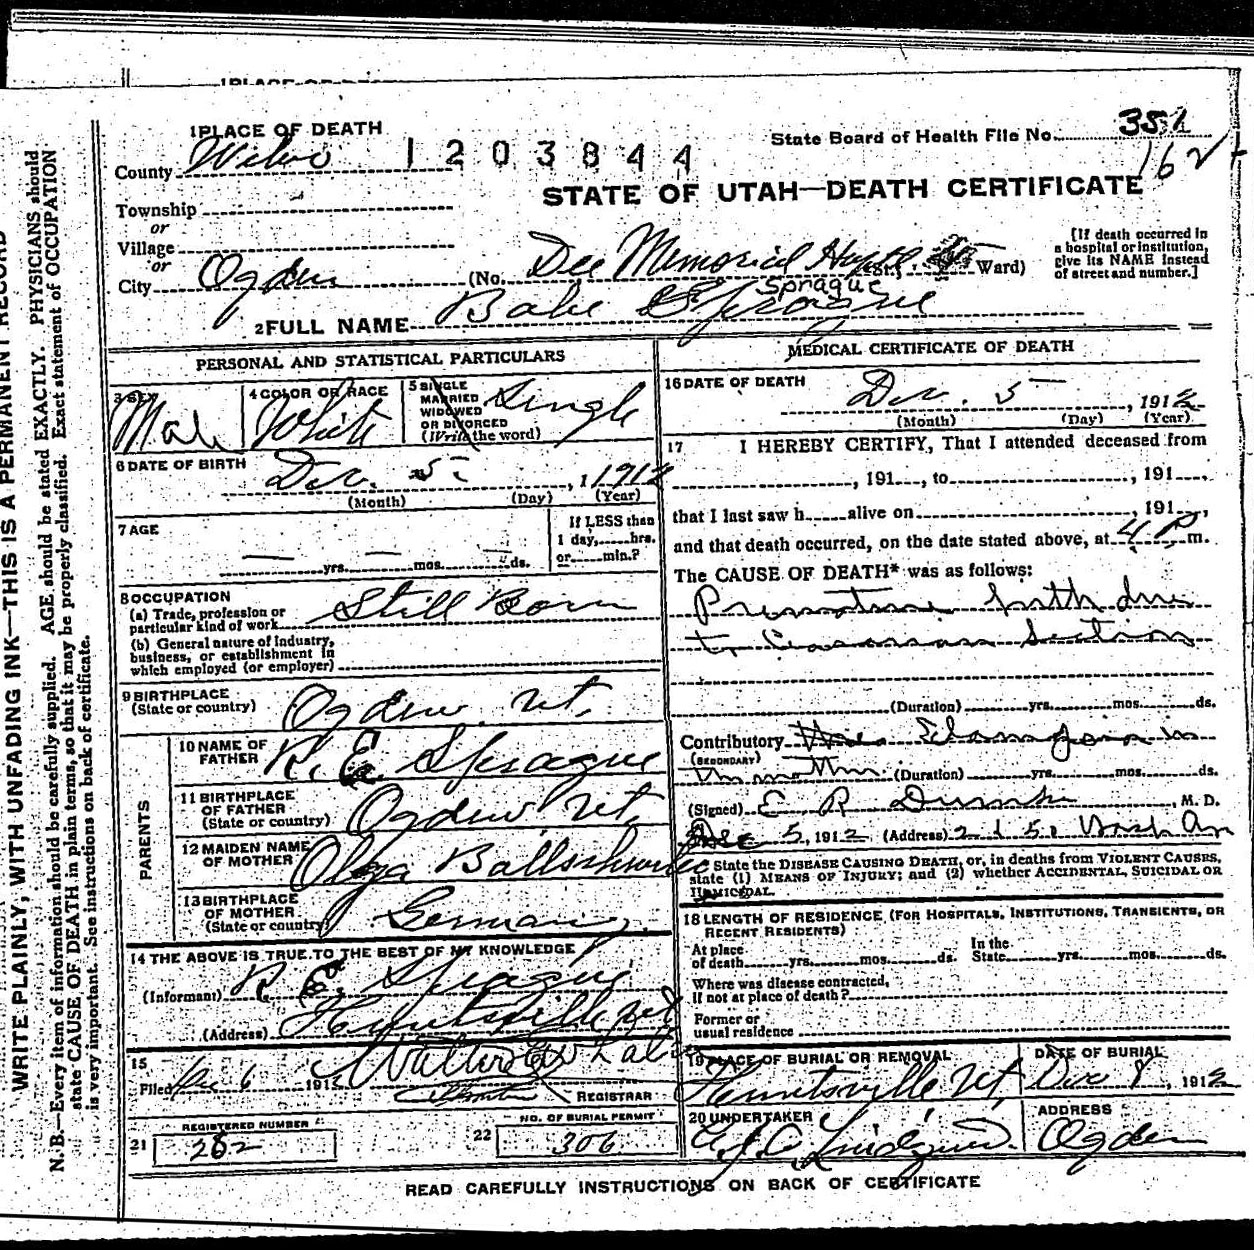 WRITE PLAINLY, WITH UNFADING INK—THIS IS A PERMANENT RECORD
N. B.—Every item of information should be carefully supplied. AGE should be stated EXACTLY. PHYSICIANS should
state CAUSE OF DEATH in plain terms, so that it may be properly classified. Exact statement of OCCUPATION
is very important. See instructions on back of certificate.
1 PLACE OF DEATH
County Weber
1203844
State Board of Health File No. 351
162
STATE OF UTAH—DEATH CERTIFICATE
Township
or
Village
or
City Ogden (No. Dee Memorial St.; Ward)
[If death occurred in
a hospital or institution,
give its NAME instead
of street and number.]
Sprague
2 FULL NAME Babe Sprague
PERSONAL AND STATISTICAL PARTICULARS
3 SEX
Male
4 COLOR OR RACE
White
5 SINGLE
MARRIED
WIDOWED
OR DIVORCED
(Write the word)
Single
6 DATE OF BIRTH
Dec. 5, 1912
(Month) (Day) (Year)
7 AGE
— yrs. — mos. — ds.
If LESS than
1 day, hrs.
or min.?
8 OCCUPATION
(a) Trade, profession or
particular kind of work Still Born
(b) General nature of industry,
business, or establishment in
which employed (or employer)
9 BIRTHPLACE
(State or country) Ogden Ut.
PARENTS
10 NAME OF
FATHER R. E. Sprague
11 BIRTHPLACE
OF FATHER
(State or country) Ogden Ut.
12 MAIDEN NAME
OF MOTHER Olga
13 BIRTHPLACE
OF MOTHER
(State or country) Germany
14 THE ABOVE IS TRUE TO THE BEST OF MY KNOWLEDGE
(Informant) R. E. Sprague
(Address) Huntsville Ut
15
Filed Dec 6 1912 Walter
REGISTRAR
REGISTERED NUMBER
21 282
NO. OF BURIAL PERMIT
22 306
MEDICAL CERTIFICATE OF DEATH
16 DATE OF DEATH
Dec. 5, 1912
(Month) (Day) (Year)
17 I HEREBY CERTIFY, That I attended deceased from
, 191 , to , 191 ,
that I last saw h alive on , 191 ,
and that death occurred, on the date stated above, at 4 P. m.
The CAUSE OF DEATH* was as follows:
Premature birth due
to Section
(Duration) yrs. mos. ds.
Contributory
(SECONDARY)
(Duration) yrs. mos. ds.
(Signed) E R Dumke, M. D.
Dec 5, 1912 (Address) Wash Av
* State the DISEASE CAUSING DEATH, or, in deaths from VIOLENT CAUSES,
state (1) MEANS OF INJURY; and (2) whether ACCIDENTAL, SUICIDAL OR
HOMICIDAL.
18 LENGTH OF RESIDENCE (FOR HOSPITALS, INSTITUTIONS, TRANSIENTS, OR
RECENT RESIDENTS)
At place
of death yrs. mos. ds.
In the
State yrs. mos. ds.
Where was disease contracted,
if not at place of death?
Former or
usual residence
19 PLACE OF BURIAL OR REMOVAL
Huntsville Ut.
DATE OF BURIAL
Dec 8, 1912
20 UNDERTAKER
ADDRESS
Ogden
READ CAREFULLY INSTRUCTIONS ON BACK OF CERTIFICATE